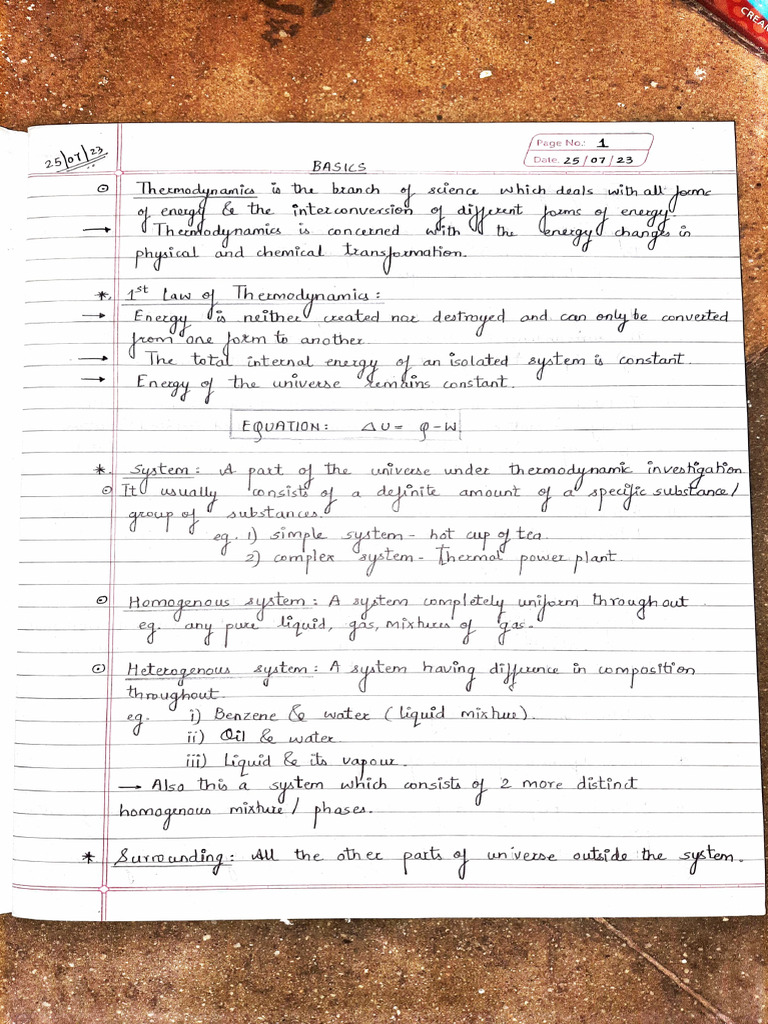 CREAM
25/07/23
Page No.: 1
Date: 25/07/23
BASICS
⊙ Thermodynamics is the branch of science which deals with all forms
of energy & the interconversion of different forms of energy.
→ Thermodynamics is concerned with the energy changes in
physical and chemical transformation.
*. 1st Law of Thermodynamics:
→ Energy is neither created nor destroyed and can only be converted
from one form to another.
→ The total internal energy of an isolated system is constant.
→ Energy of the universe remains constant.
EQUATION: ΔU = Q - W
*. System: A part of the universe under thermodynamic investigation
⊙ It usually consists of a definite amount of a specific substance/
group of substances.
eg. 1) simple system - hot cup of tea.
2) complex system - Thermal power plant.
⊙ Homogenous system: A system completely uniform throughout
eg. any pure liquid, gas, mixtures of gas.
⊙ Heterogenous system: A system having difference in composition
throughout.
eg. i) Benzene & water (liquid mixture).
ii) Oil & water.
iii) Liquid & its vapour.
→ Also this a system which consists of 2 more distinct
homogenous mixture / phases.
* Surrounding: All the other parts of universe outside the system.